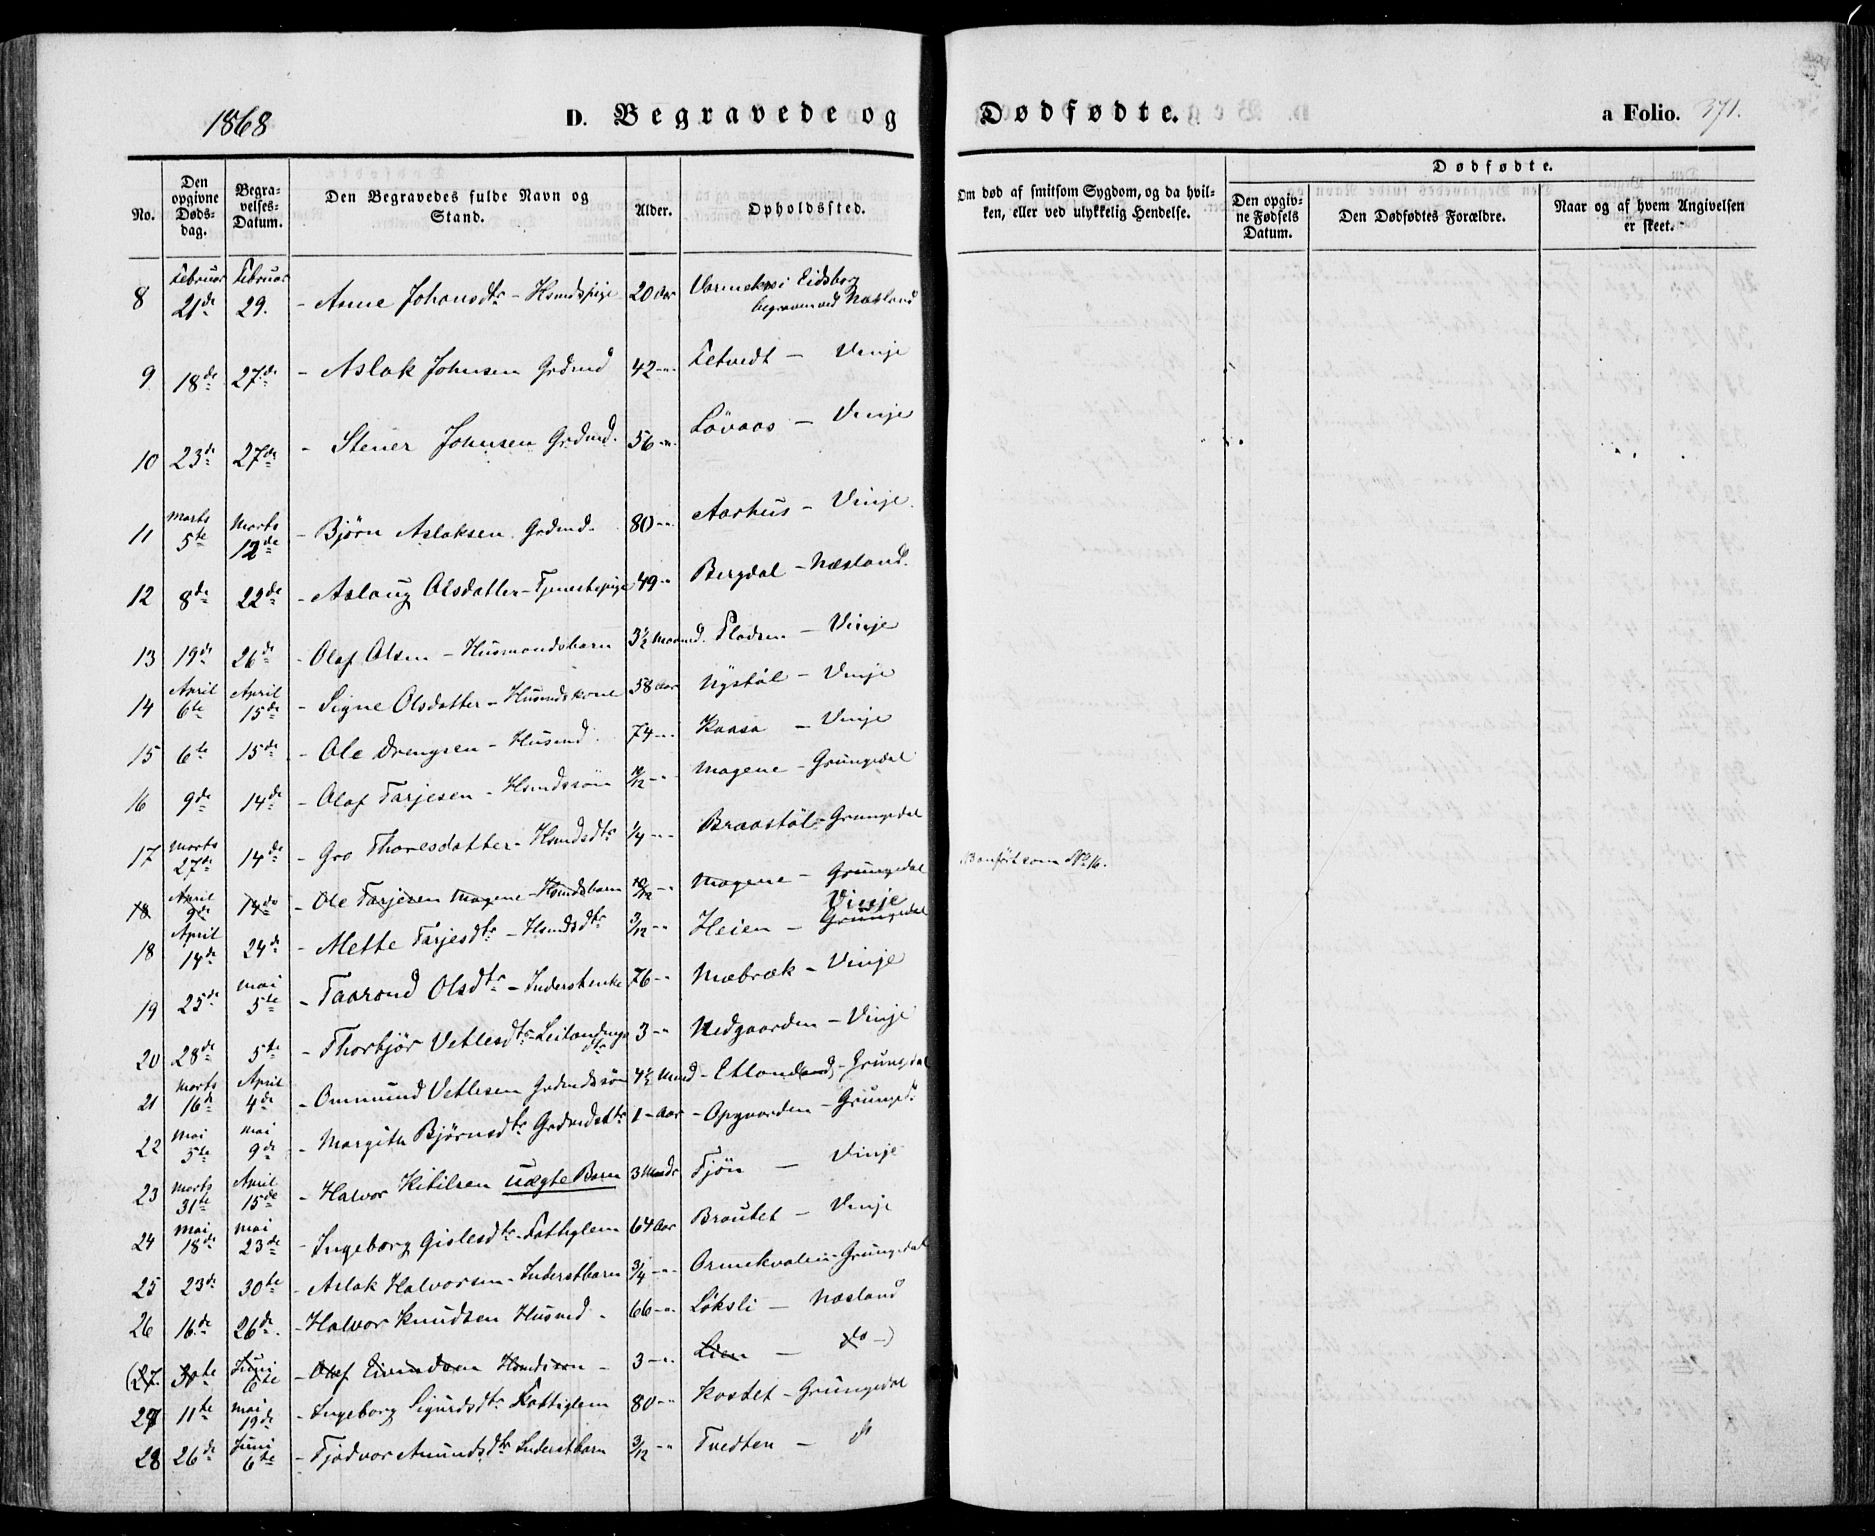 1868 D. Begravede og Dødfødte. a Folio. 371.
No. Den opgivne Døds-dag. Begra-velses-Datum. Den Begravedes fulde Navn og Stand. Alder. Opholdssted. Om død af smitsom Sygdom, og da hvil-ken, eller ved ulykkelig Hendelse. Dødfødte. Den opgiv-ne Fødsels Datum. Den Dødfødtes Forældre. Naar og af hvem Angivelsen er skeet.
8 Februar 21de Februar 29. - Anne Johansdtr - Hsmdspige 20 Aar Eidsborg begraven ved Næsland
9 18de 27de - Aslak Johnsen Grdmd 42 -"- Tetvedt - Vinje
10 23de 27de - Stener Johnsen Grdmd. 56 -"- Løvaas - Vinje
11 Marts 5te Marts 12de - Bjørn Aslaksen Grdmd. 80 -"- Aarhus - Vinje.
12 8de 22de - Aslaug Olsdatter - Tjenestepige 49 -"- Bergdal - Næsland.
13 19de 26de - Olaf Olsen - Husmandsbarn 3½ Maaned. Flodsen - Vinje
14 April 6te April 15de - Signe Olsdatter - Husmdskone 58 Aar Nystøl - Vinje
15 6te 15de - Ole Drengsen - Husmd. 74 -"- Kaasa - Vinje
16 9de 14de - Olaf Tarjesen - Hsmdssøn 10/12 -"- Mogene - Grungedal
17 Marts 27de 14de - Gro Thoresdatter - Hsmdsdtr ¼ -"- Braastøl - Grungedal
18 April 9de 14de - Ole Tarjesen Mogene - Hsmdsbarn 10/12 -"- Mogene - Grungedal Anført som No. 16.
18 April 14de 24de - Mette Tarjesdtr - Hsmdsdtr 3/12 -"- Heien - Grungedal Vinje
19 25de Mai 5te - Taarand Olsdtr - Inderstenke 76 -"- Mæbræk - Vinje
20 28de 5te - Thorbjør Vetlesdtr - Leilændings dtr 3 -"- Nedgaarden - Vinje
21 Marts 16de April 4de - Ommund Vetlesen Grdmdssøn 4½ Mnd - Etland - Grungedal
22 Mai 5te Mai 9de - Margith Bjørnsdtr Grdmdsdtr 1 - Aar - Opgaarden - Grunged
23 Marts 31te April 15de - Halvor Kittilsen uægte Barn 3 Mnder Tjøn - Vinje
24 Mai 18de Mai 23de - Ingeborg Gislesdtr - Fattiglem 64 Aar Brautet - Vinje
25 23de 30te - Aslak Halvorsen - Inderstbarn ¾ -"- Ormekvalen - Grungedal
26 16de 26de. - Halvor Knudsen Husmd - 66 -"- Løksli - Næsland
(27. 30te Juni 6te - Olaf Hsmdssøn - 3 -"- Lien - do -)
27 11te Mai 19de - Ingeborg Sigurdsdtr Fattiglem 80 -"- Kostet - Grungedal
28 26de Juni 6te - Tjodvor Amundsdtr Inderstbarn 3/12 -"- Tvedten - do